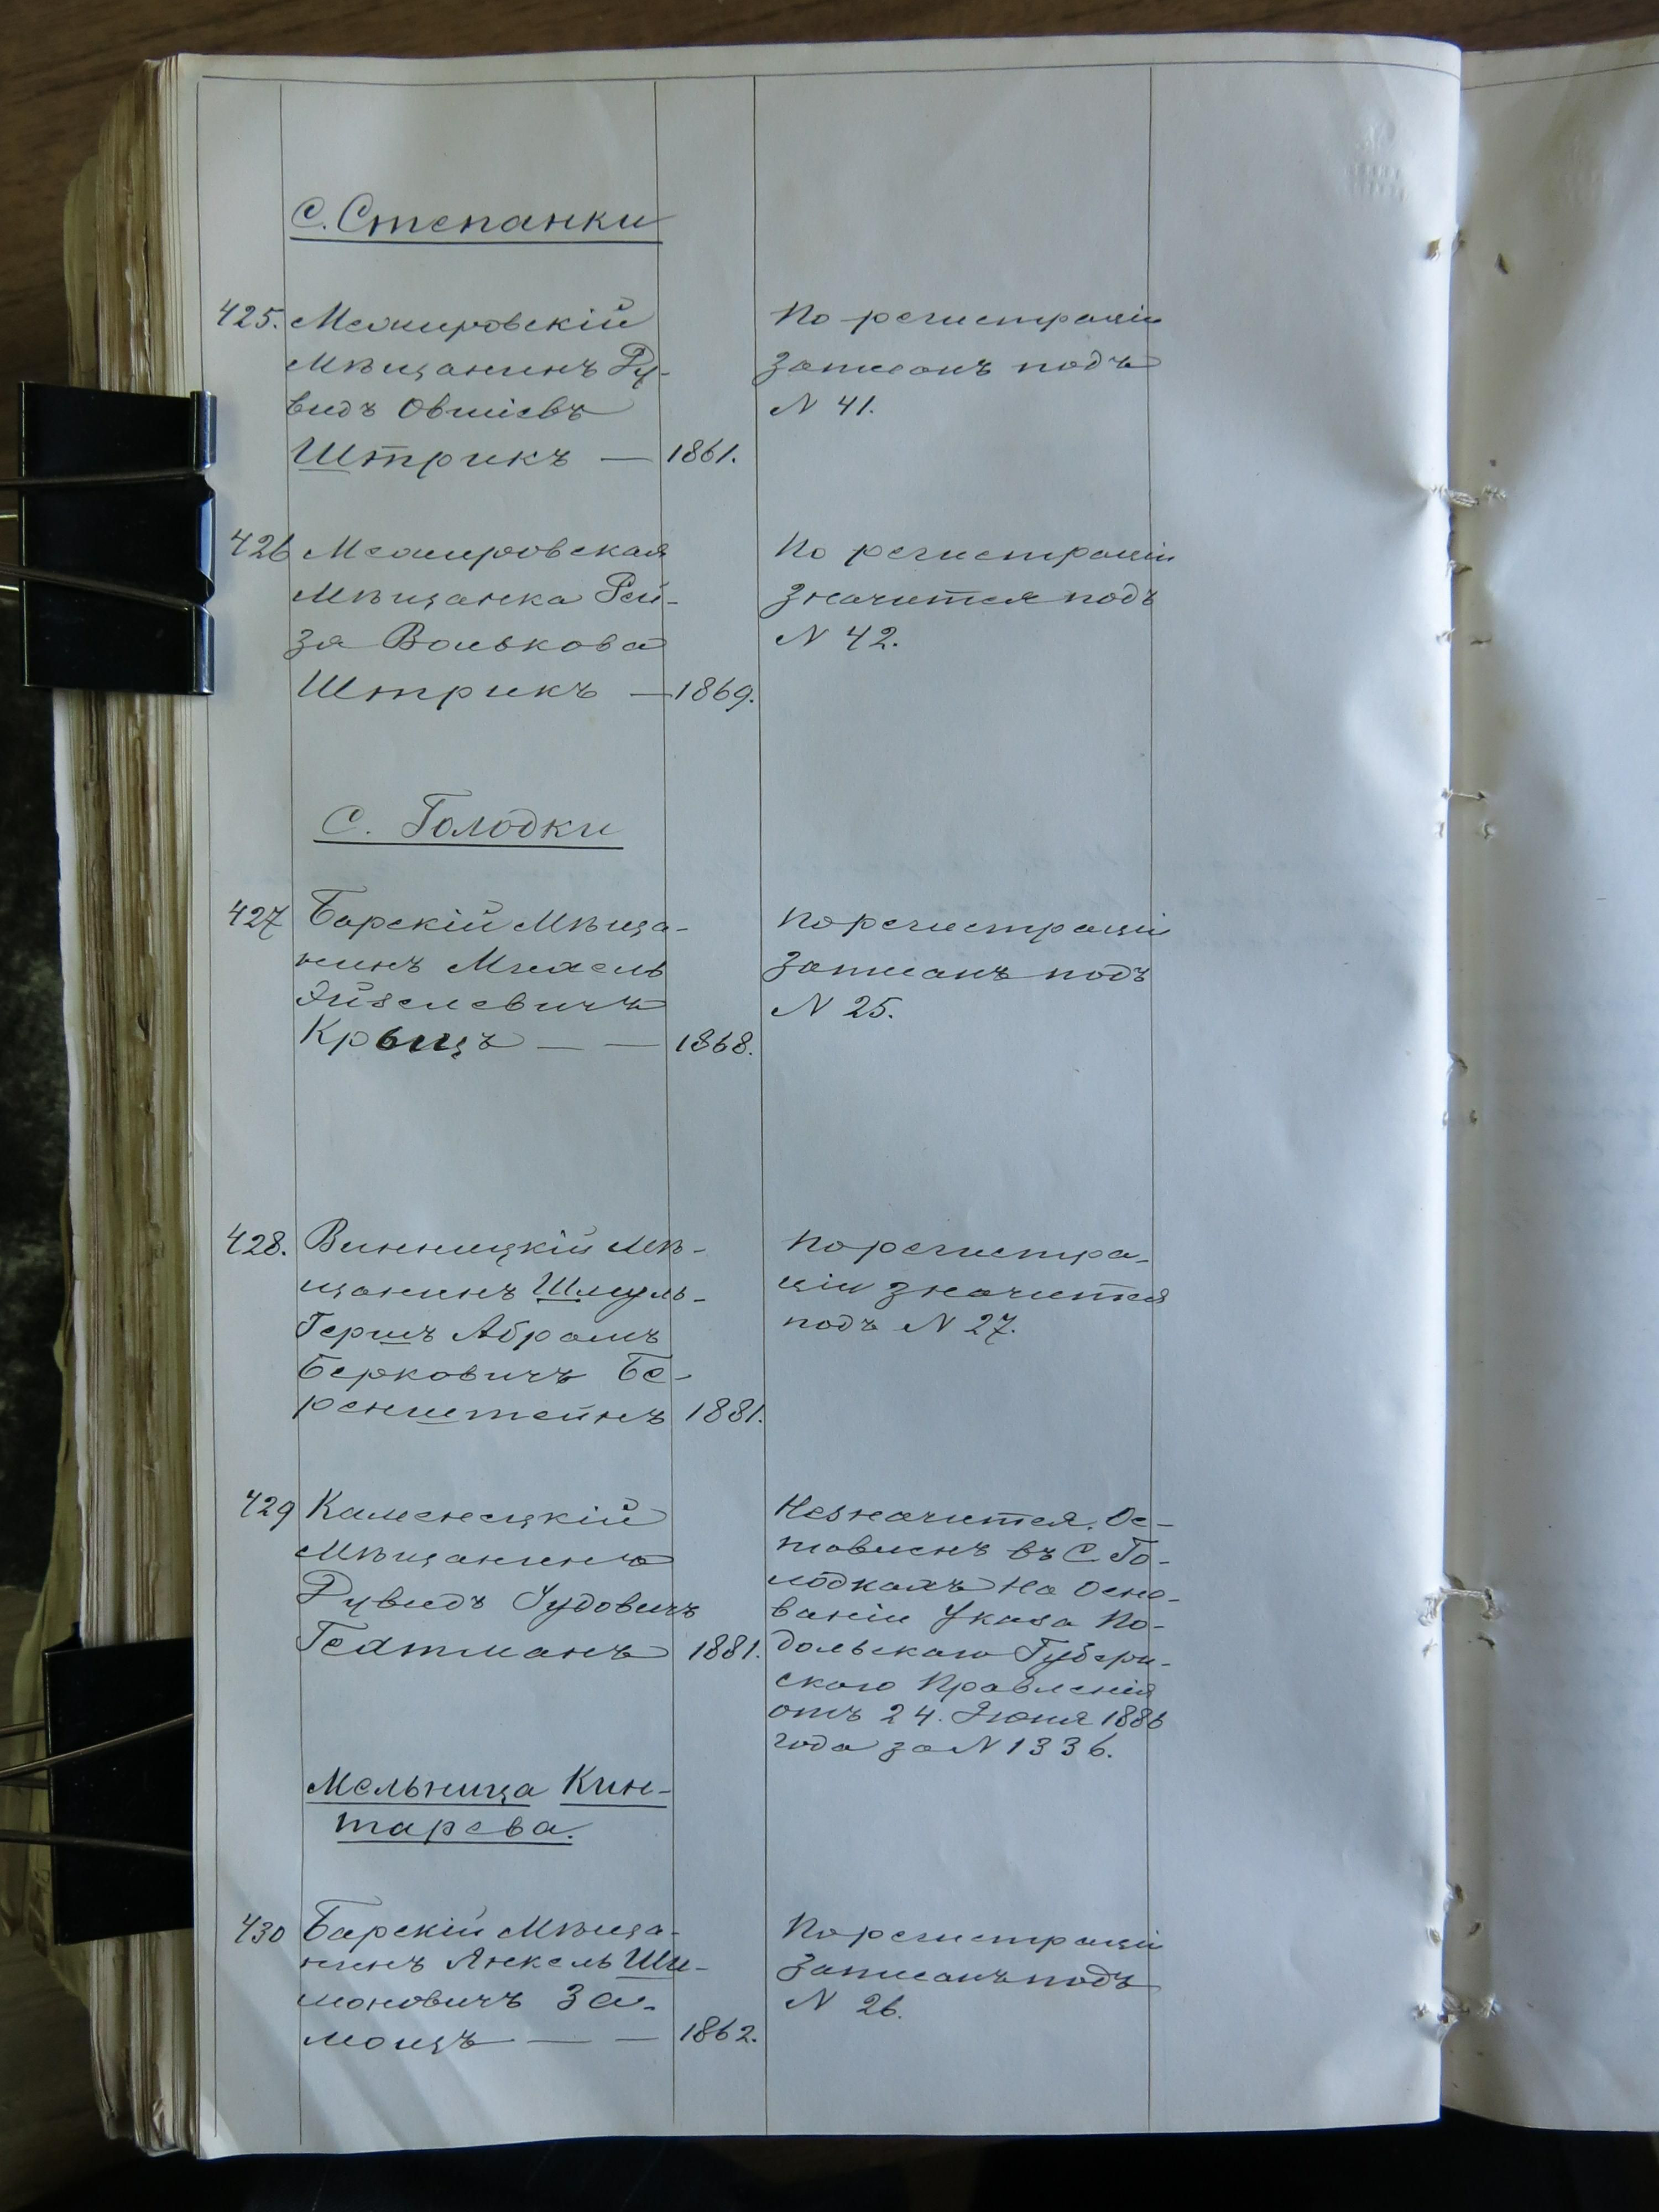 С. Степанки
425. Межировскій
Мѣщанинъ Ру-
видъ Овшіевъ
Штрикъ — 1861.
По регистраціи
записанъ подъ
N 41.
426 Межировская
Мѣщанка Рей-
за Волькова
Штрикъ — 1869.
По регистраціи
значится подъ
N 42.
С. Голодки
427 Барскій Мѣща-
нинъ Михель
Эйзелевичъ
Крыщъ — — 1868.
По регистраціи
записанъ подъ
N 25.
428. Винницкій Мѣ-
щанинъ Шмуль-
Гершъ Абрамъ
Берковичъ Бе-
ренштейнъ 1881.
По регистра-
ціи значится
подъ N 27.
429 Каменецкій
Мѣщанинъ
Рувидъ Іудовичъ
Гехтманъ 1881.
Незначится. Ос-
тавленъ въ С. Го-
лодкахъ На Осно-
ваніи Указа По-
дольскаго Губерн-
скаго Правленія
отъ 24. Іюня 1886
года за N 1336.
Мельница Кин-
тарева.
430 Барскій Мѣща-
нинъ Анкель Ши-
моновичъ За-
мощъ — — 1862.
По регистраціи
Записанъ подъ
N 26.